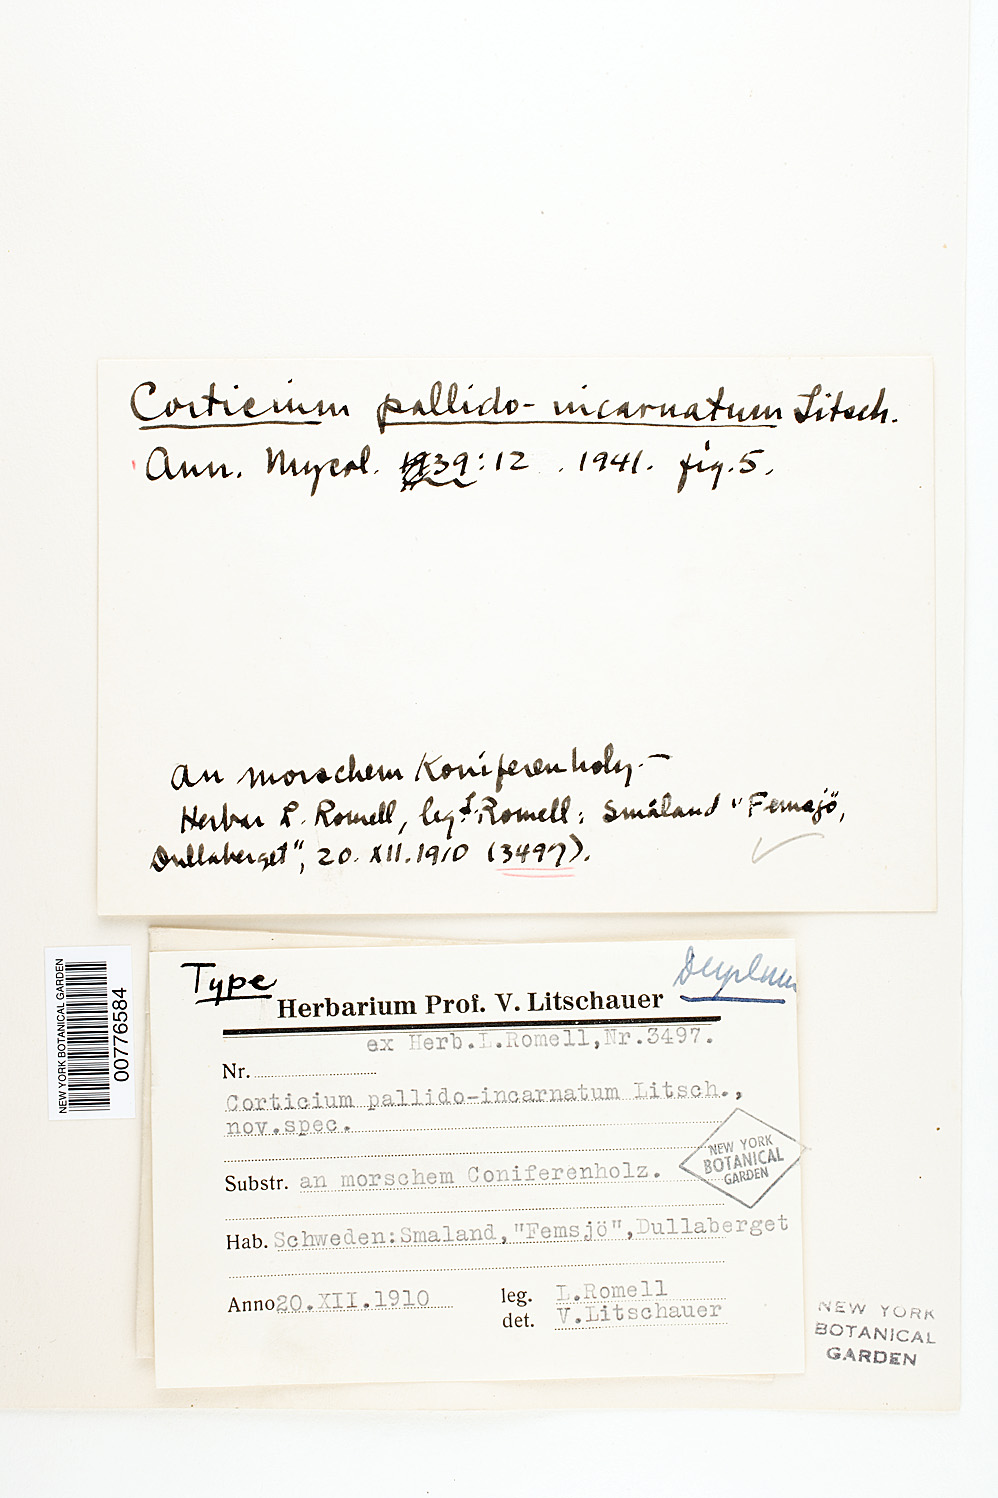 Corticium pallido-incarnatum Litsch.
Ann. Mycol. 39:12. 1941. fig. 5.
An morschem Koniferenholz —
Herbar L. Romell, leg. L. Romell: Småland "Femsjö,
Dullaberget", 20. XII. 1910 (3497).
NEW YORK BOTANICAL GARDEN
00776584
Type
Herbarium Prof. V. Litschauer
ex Herb.L.Romell,Nr.3497.
Nr.
Corticium pallido-incarnatum Litsch.,
nov.spec.
NEW YORK
BOTANICAL
GARDEN
Substr. an morschem Coniferenholz.
Hab. Schweden:Smaland,"Femsjö",Dullaberget
Anno 20.XII.1910
leg. L.Romell
det. V.Litschauer
NEW YORK
BOTANICAL
GARDEN